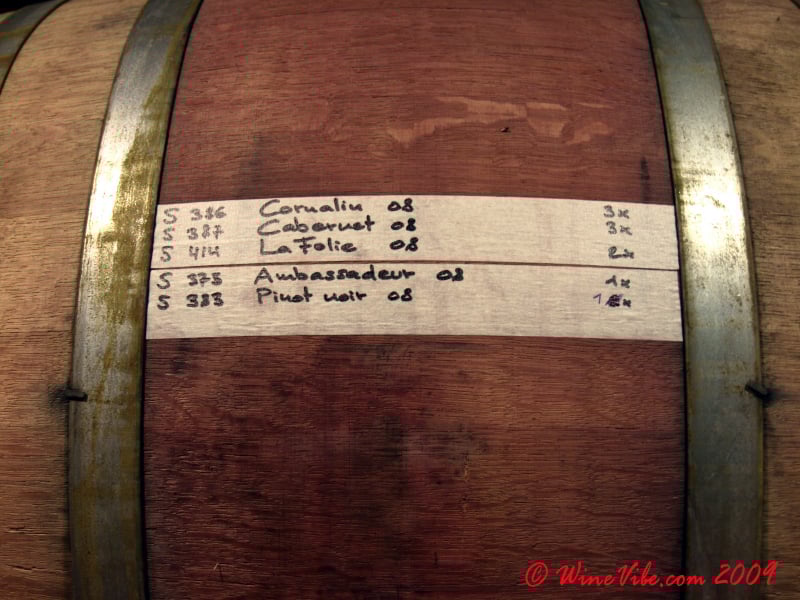 S 386 Cornalin 08 3x
S 387 Cabernet 08 3x
S 414 La Folie 08 2x
S 375 Ambassadeur 08 1x
S 383 Pinot noir 08
© WineVibe.com 2009